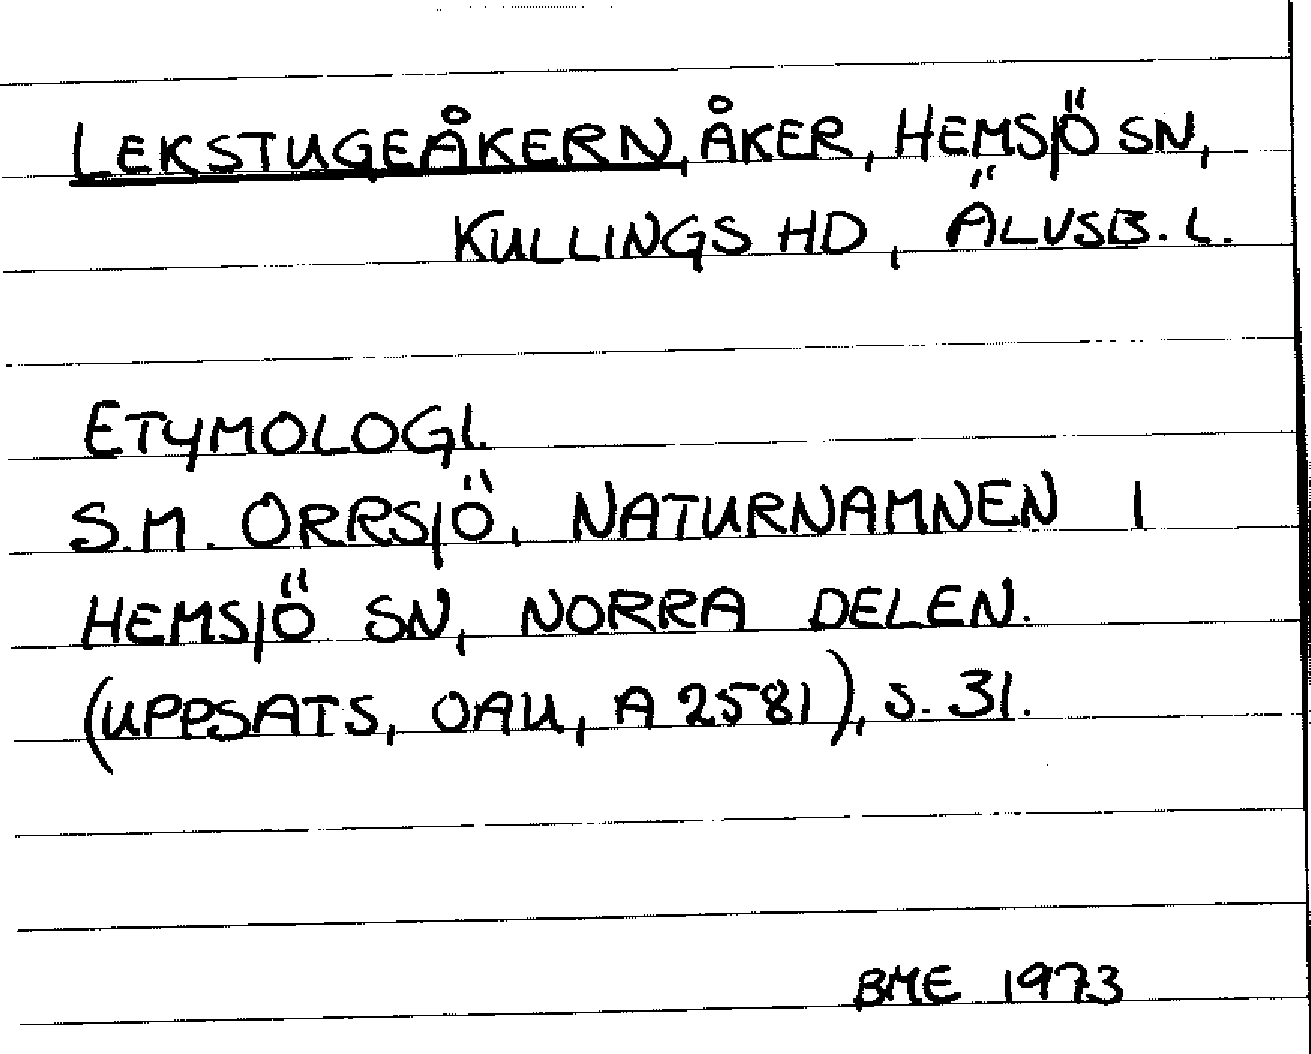 LEKSTUGEÅKERN, ÅKER, HEMSJÖ SN,
KULLINGS HD, ÄLVSB. L.
ETYMOLOGI.
S.M. ORRSJÖ, NATURNAMNEN I
HEMSJÖ SN, NORRA DELEN.
(UPPSATS, OAU, A 2581), S. 31.
BME 1973